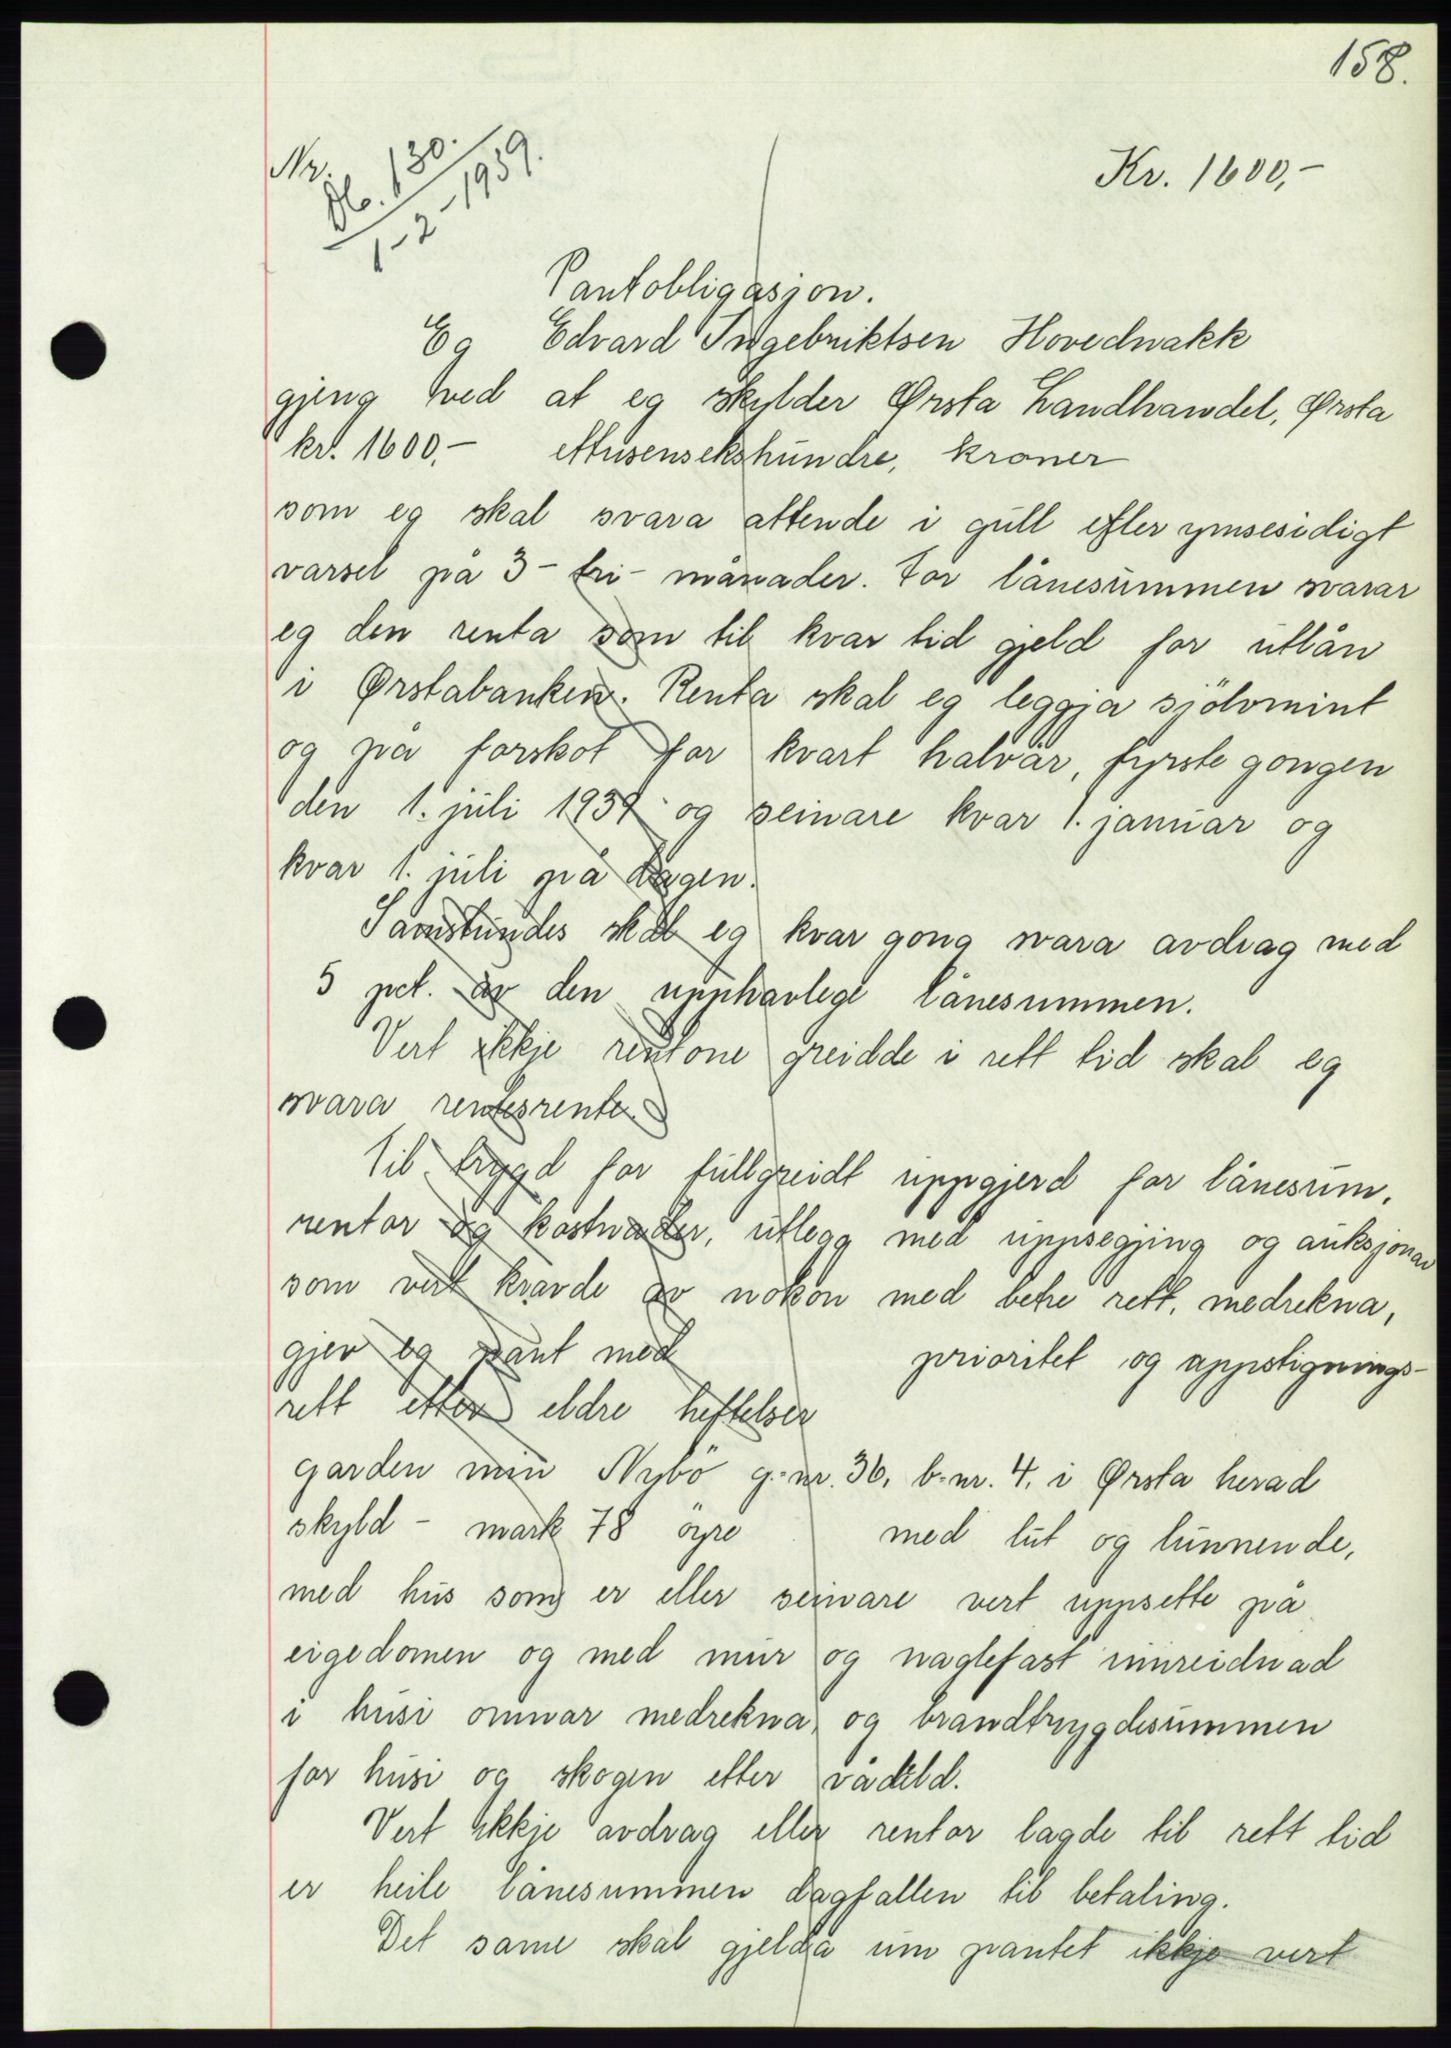 158.
Nr.
Db. 130.
1-2-1939.
Kr. 1600,-
Pantobligasjon.
Eg Edvard Ingebriktsen Hovednakk
gjeng ved at eg skylder Ørsta Landhandel, Ørsta
kr. 1600,- ettusensekshundre, kroner
som eg skal svara attende i gull efter ymsesidigt
varsel på 3 - tri - månader. For lånesummen svarar
eg den renta som til kvar tid gjeld for utlån
i Ørstabanken. Renta skal eg leggja sjölvmint
og på forskot for kvart halvår, fyrste gongen
den 1. juli 1939 og seinare kvar 1. januar og
kvar 1. juli på dagen.
Samstundes skal eg kvar gong svara avdrag med
5 pct. av den upphavlege lånesummen.
Vert ikkje rentone greidde i rett tid skal eg
svara rentesrente.
Til trygd for fullgreidt uppgjerd for lånesum,
rentor og kostnader, utlegg med uppsegjing og auksjonar
som vert kravde av nokon med betre rett, medrekna,
gjev eg pant med prioritet og uppstignings-
rett etter eldre heftelser
garden min Nybö g.-nr. 36, b.-nr. 4, i Ørsta herad
skyld - mark 78 öyre med lut og lunnende,
med hus som er eller seinare vert uppsette på
eigedomen og med mur og naglefast innreidnad
i husi omnar medrekna, og brandtrygdesummen
for husi og skogen etter vådeld.
Vert ikkje avdrag eller rentor lagde til rett tid
er heile lånesummen dagfallen til betaling.
Det same skal gjelda um pantet ikkje vert